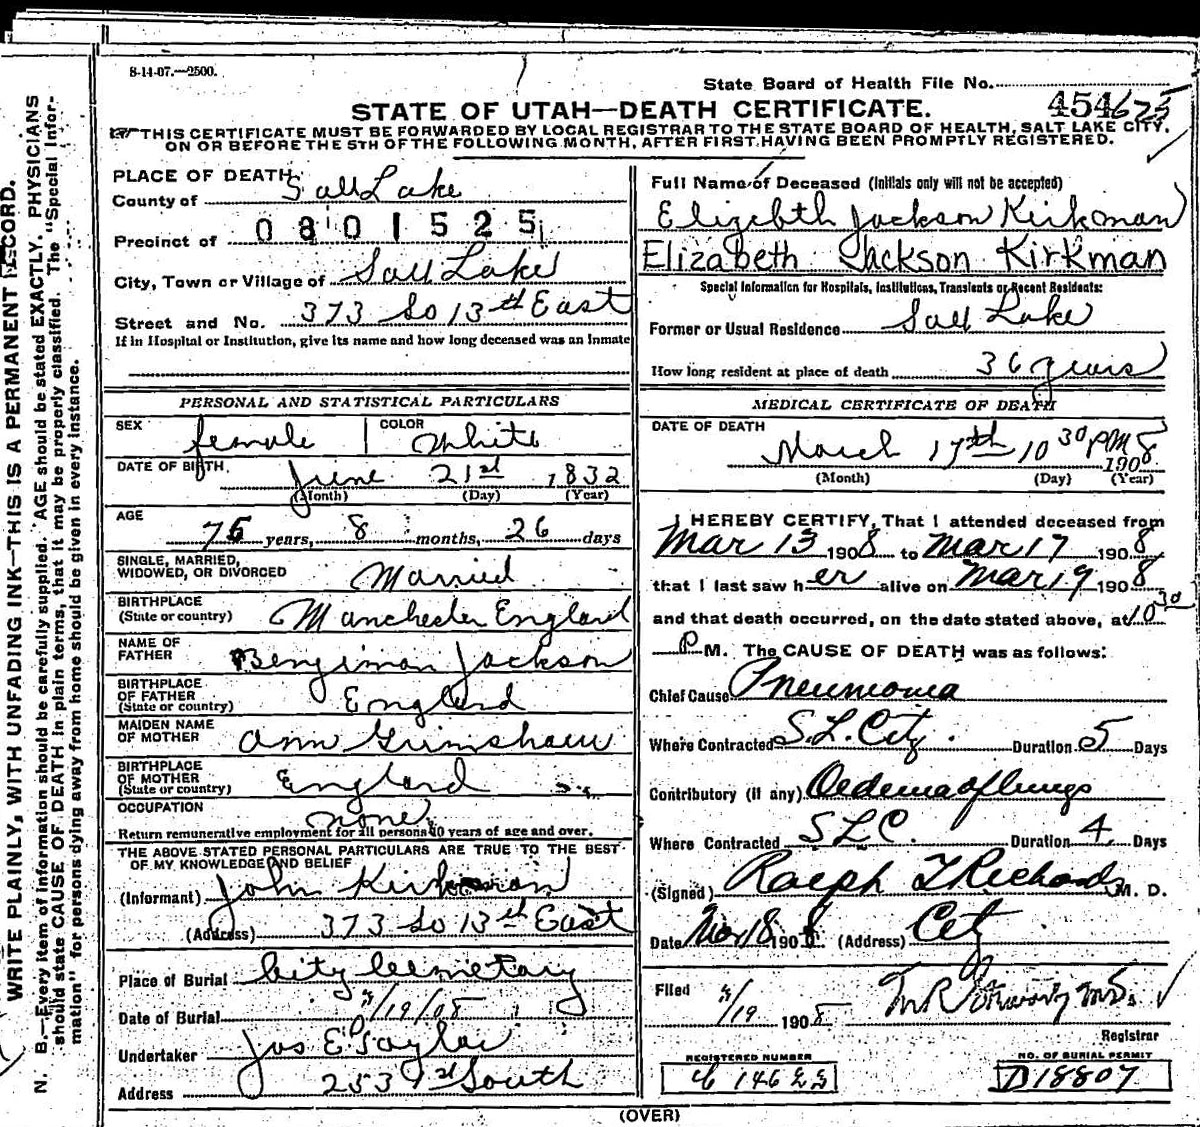 8-14-07.—2500.
State Board of Health File No.
454675
STATE OF UTAH—DEATH CERTIFICATE.
☞THIS CERTIFICATE MUST BE FORWARDED BY LOCAL REGISTRAR TO THE STATE BOARD OF HEALTH, SALT LAKE CITY,
ON OR BEFORE THE 5TH OF THE FOLLOWING MONTH, AFTER FIRST HAVING BEEN PROMPTLY REGISTERED.
WRITE PLAINLY, WITH UNFADING INK—THIS IS A PERMANENT RECORD.
N. B.—Every item of information should be carefully supplied. AGE should be stated EXACTLY. PHYSICIANS
should state CAUSE OF DEATH in plain terms, that it may be properly classified. The "Special Infor-
mation" for persons dying away from home should be given in every instance.
PLACE OF DEATH:
County of Salt Lake
Precinct of 0801525
City, Town or Village of Salt Lake
Street and No. 373 So 13th East
If in Hospital or Institution, give its name and how long deceased was an inmate
PERSONAL AND STATISTICAL PARTICULARS
SEX female COLOR White
DATE OF BIRTH June 21st 1832
(Month) (Day) (Year)
AGE
75 years, 8 months, 26 days
SINGLE, MARRIED,
WIDOWED, OR DIVORCED Married
BIRTHPLACE
(State or country) Manchester England
NAME OF
FATHER Benjiman Jackson
BIRTHPLACE
OF FATHER
(State or country) England
MAIDEN NAME
OF MOTHER Ann Grimshaw
BIRTHPLACE
OF MOTHER
(State or country) England
OCCUPATION none
Return remunerative employment for all persons 10 years of age and over.
THE ABOVE STATED PERSONAL PARTICULARS ARE TRUE TO THE BEST
OF MY KNOWLEDGE AND BELIEF
(Informant) John Kirkman
(Address) 373 So 13th East
Place of Burial City Cemetary
Date of Burial 3/19/08
Undertaker Jos E Taylor
Address 253 1st South
Full Name of Deceased (Initials only will not be accepted)
Elizebth Jackson Kirkman
Elizabeth Jackson Kirkman
Special Information for Hospitals, Institutions, Transients or Recent Residents:
Former or Usual Residence Salt Lake
How long resident at place of death 36 years
MEDICAL CERTIFICATE OF DEATH
DATE OF DEATH
March 17th 10 30 PM 1908
(Month) (Day) (Year)
I HEREBY CERTIFY, That I attended deceased from
Mar 13 1908 to Mar 17 1908
that I last saw her alive on Mar 19 1908
and that death occurred, on the date stated above, at 10 30
P M. The CAUSE OF DEATH was as follows:
Chief Cause Pneumonia
Where Contracted S.L. City. Duration 5 Days
Contributory (if any) Oedema of lungs
Where Contracted SLC. Duration 4 Days
(Signed) Ralph T Richards M. D.
Date Mar 18 1908 (Address) City
Filed 3/19 1908
Registrar
REGISTERED NUMBER
NO. OF BURIAL PERMIT
D18807
(OVER)